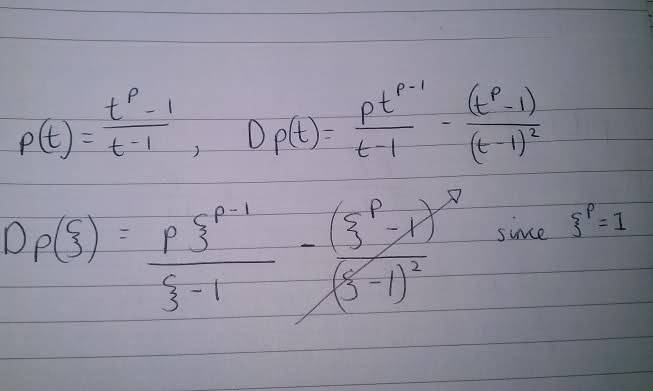 p(t) = \frac{t^p - 1}{t - 1} , Dp(t) = \frac{pt^{p-1}}{t - 1} - \frac{(t^p - 1)}{(t - 1)^2}
Dp(ξ) = \frac{p ξ^{p-1}}{ξ - 1} - \frac{(ξ^p - 1)}{(ξ - 1)^2} since ξ^p = 1